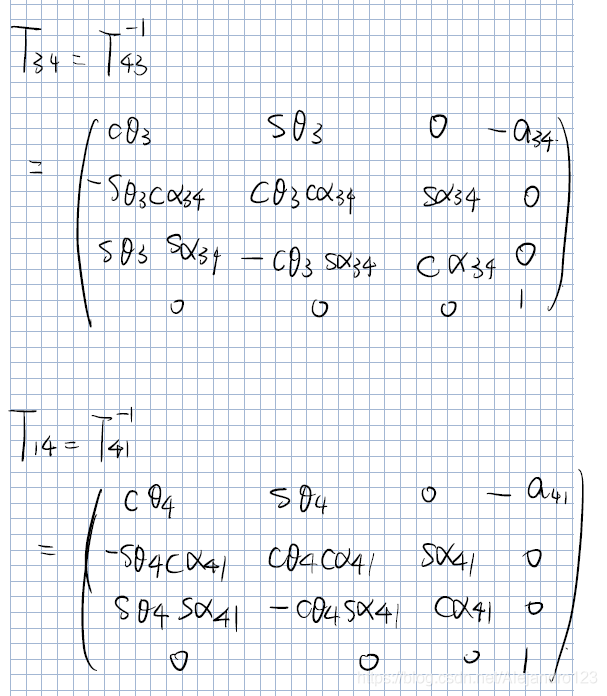 T34 = T43^-1
= ( cθ3 sθ3 0 -a34
-sθ3cα34 cθ3cα34 sα34 0
sθ3 sα34 -cθ3 sα34 cα34 0
0 0 0 1 )
T14 = T41^-1
= ( cθ4 sθ4 0 -a41
-sθ4cα41 cθ4cα41 sα41 0
sθ4 sα41 -cθ4sα41 cα41 0
0 0 0 1 )